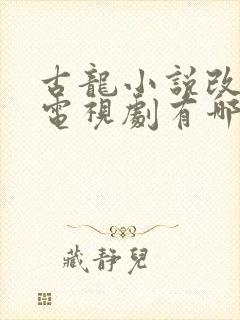 古龍小說改
電視劇有哪
藏靜兒